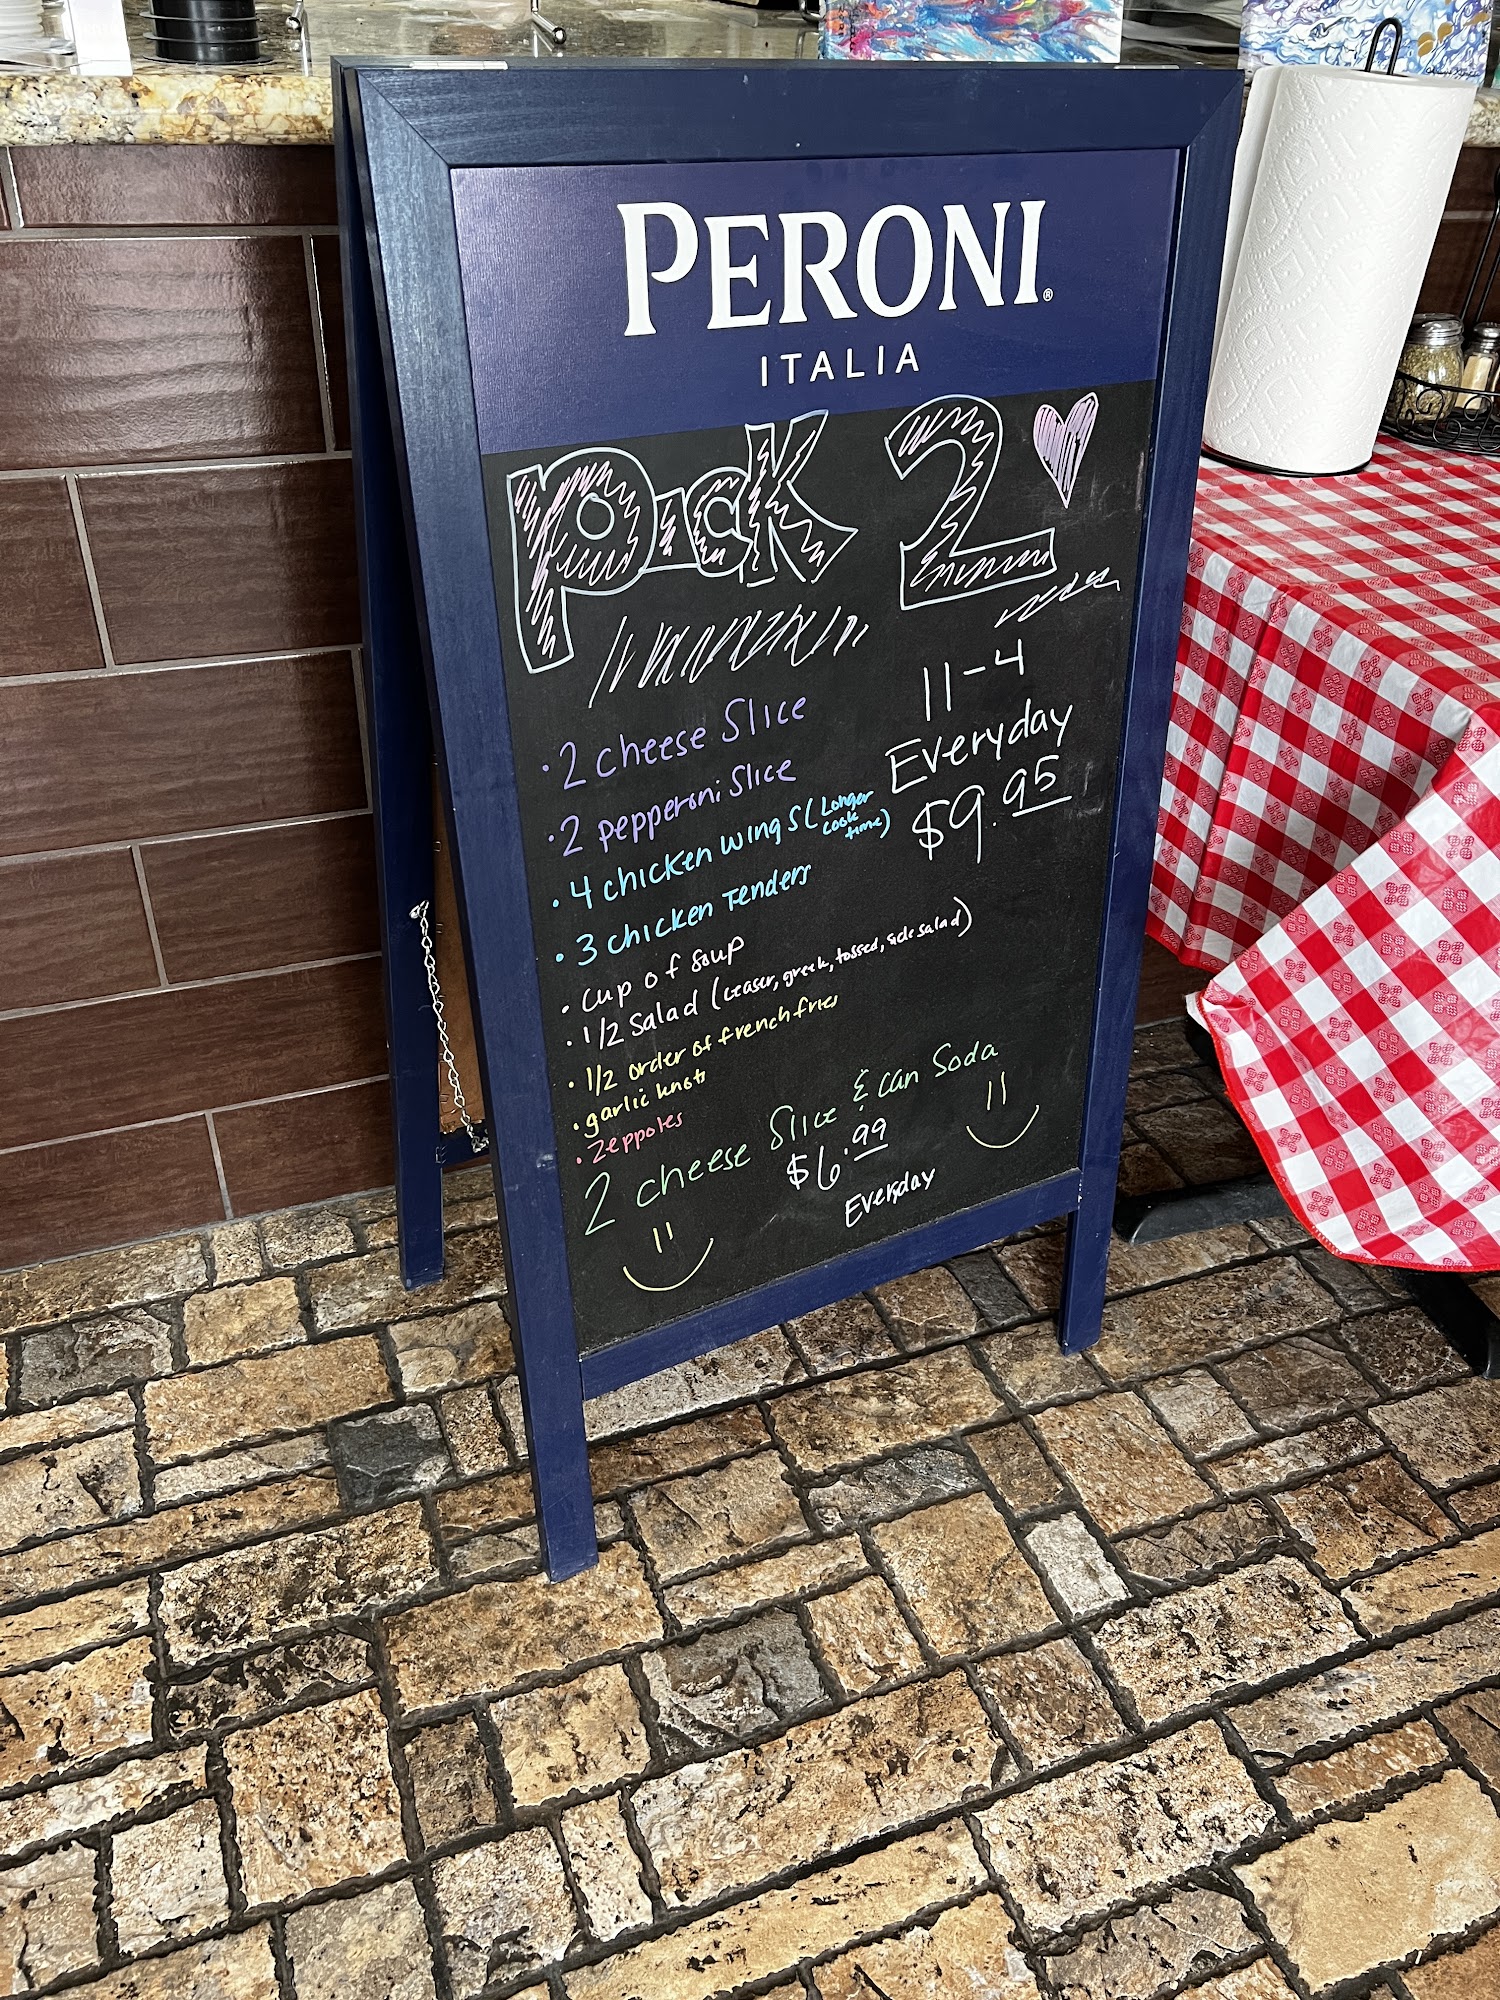 PERONI®
ITALIA
Pick 2
11-4
Everyday
$9.95
• 2 cheese Slice
• 2 pepperoni Slice
• 4 chicken wings (Longer cook time)
• 3 chicken Tenders
• Cup of soup
• 1/2 Salad (ceasar, greek, tossed, side salad)
• 1/2 order of french fries
• garlic knots
• Zeppoles
2 cheese Slice & can Soda
$6.99
Everyday